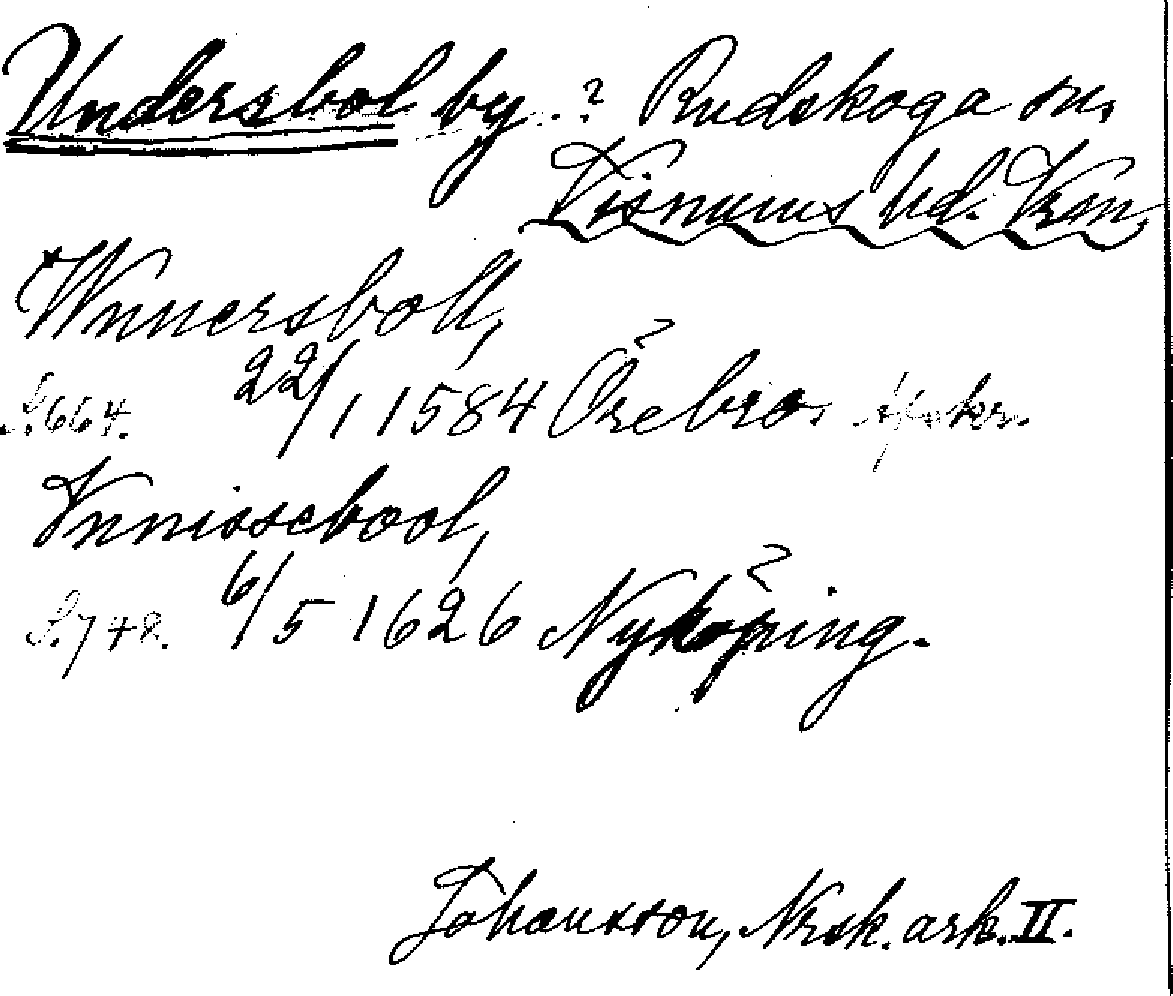 Undersbol by.? Rudskoga sn,
Visnums hd. Vrm.
"Wnnersboll,
S. 664. 22/1 1584 Örebro. Afskr.
Vnnissebool,
S. 748. 6/5 1626 Nyköping.
Johansson, Nrsk. ark. II.